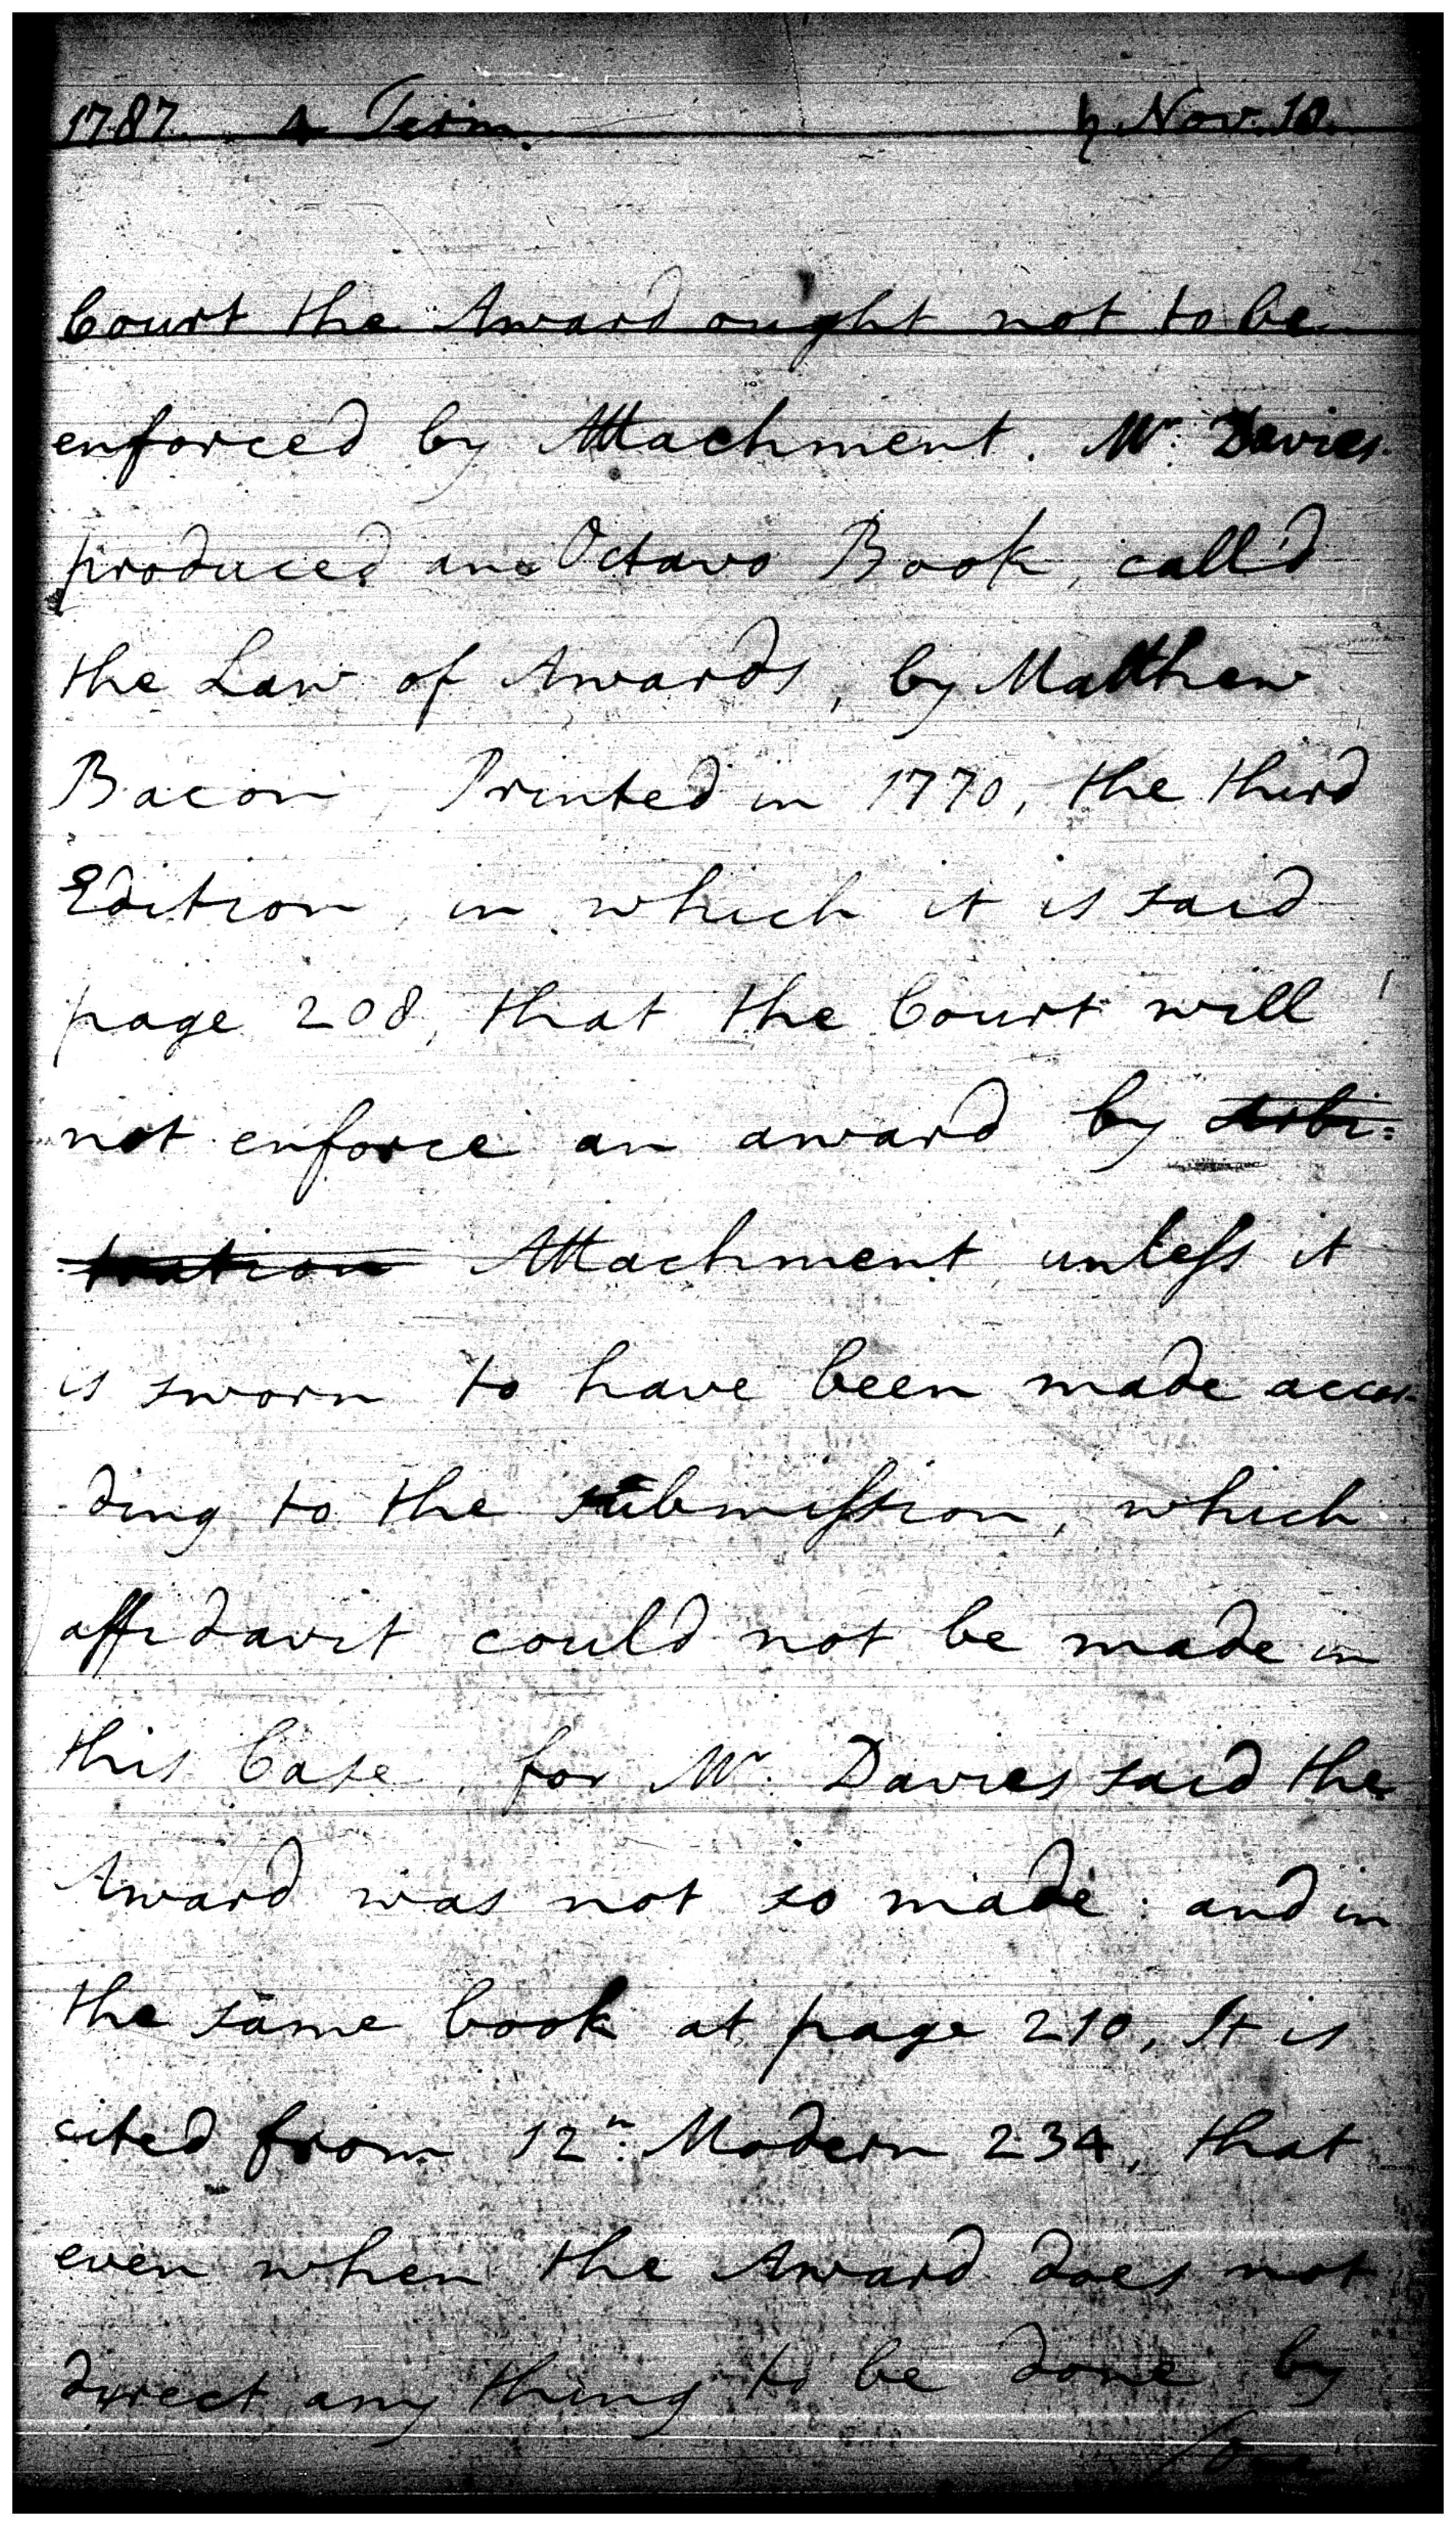 1787. 4 Term. ♄ Nov. 10.
Court the Award ought not to be
enforced by Attachment. Mr. Davies
produced an Octavo Book, call'd
the Law of Awards, by Matthew
Bacon, Printed in 1770, the third
Edition, in which it is said
page 208, that the Court will
not enforce an award by arbi:
:tration Attachment unless it
is sworn to have been made accor-
-ding to the submission, which
affidavit could not be made in
this Case, for Mr. Davies said the
Award was not so made: and in
the same book at page 210, It is
cited from 12n: Modern 234, that
even when the Award does not
direct any thing to be done by